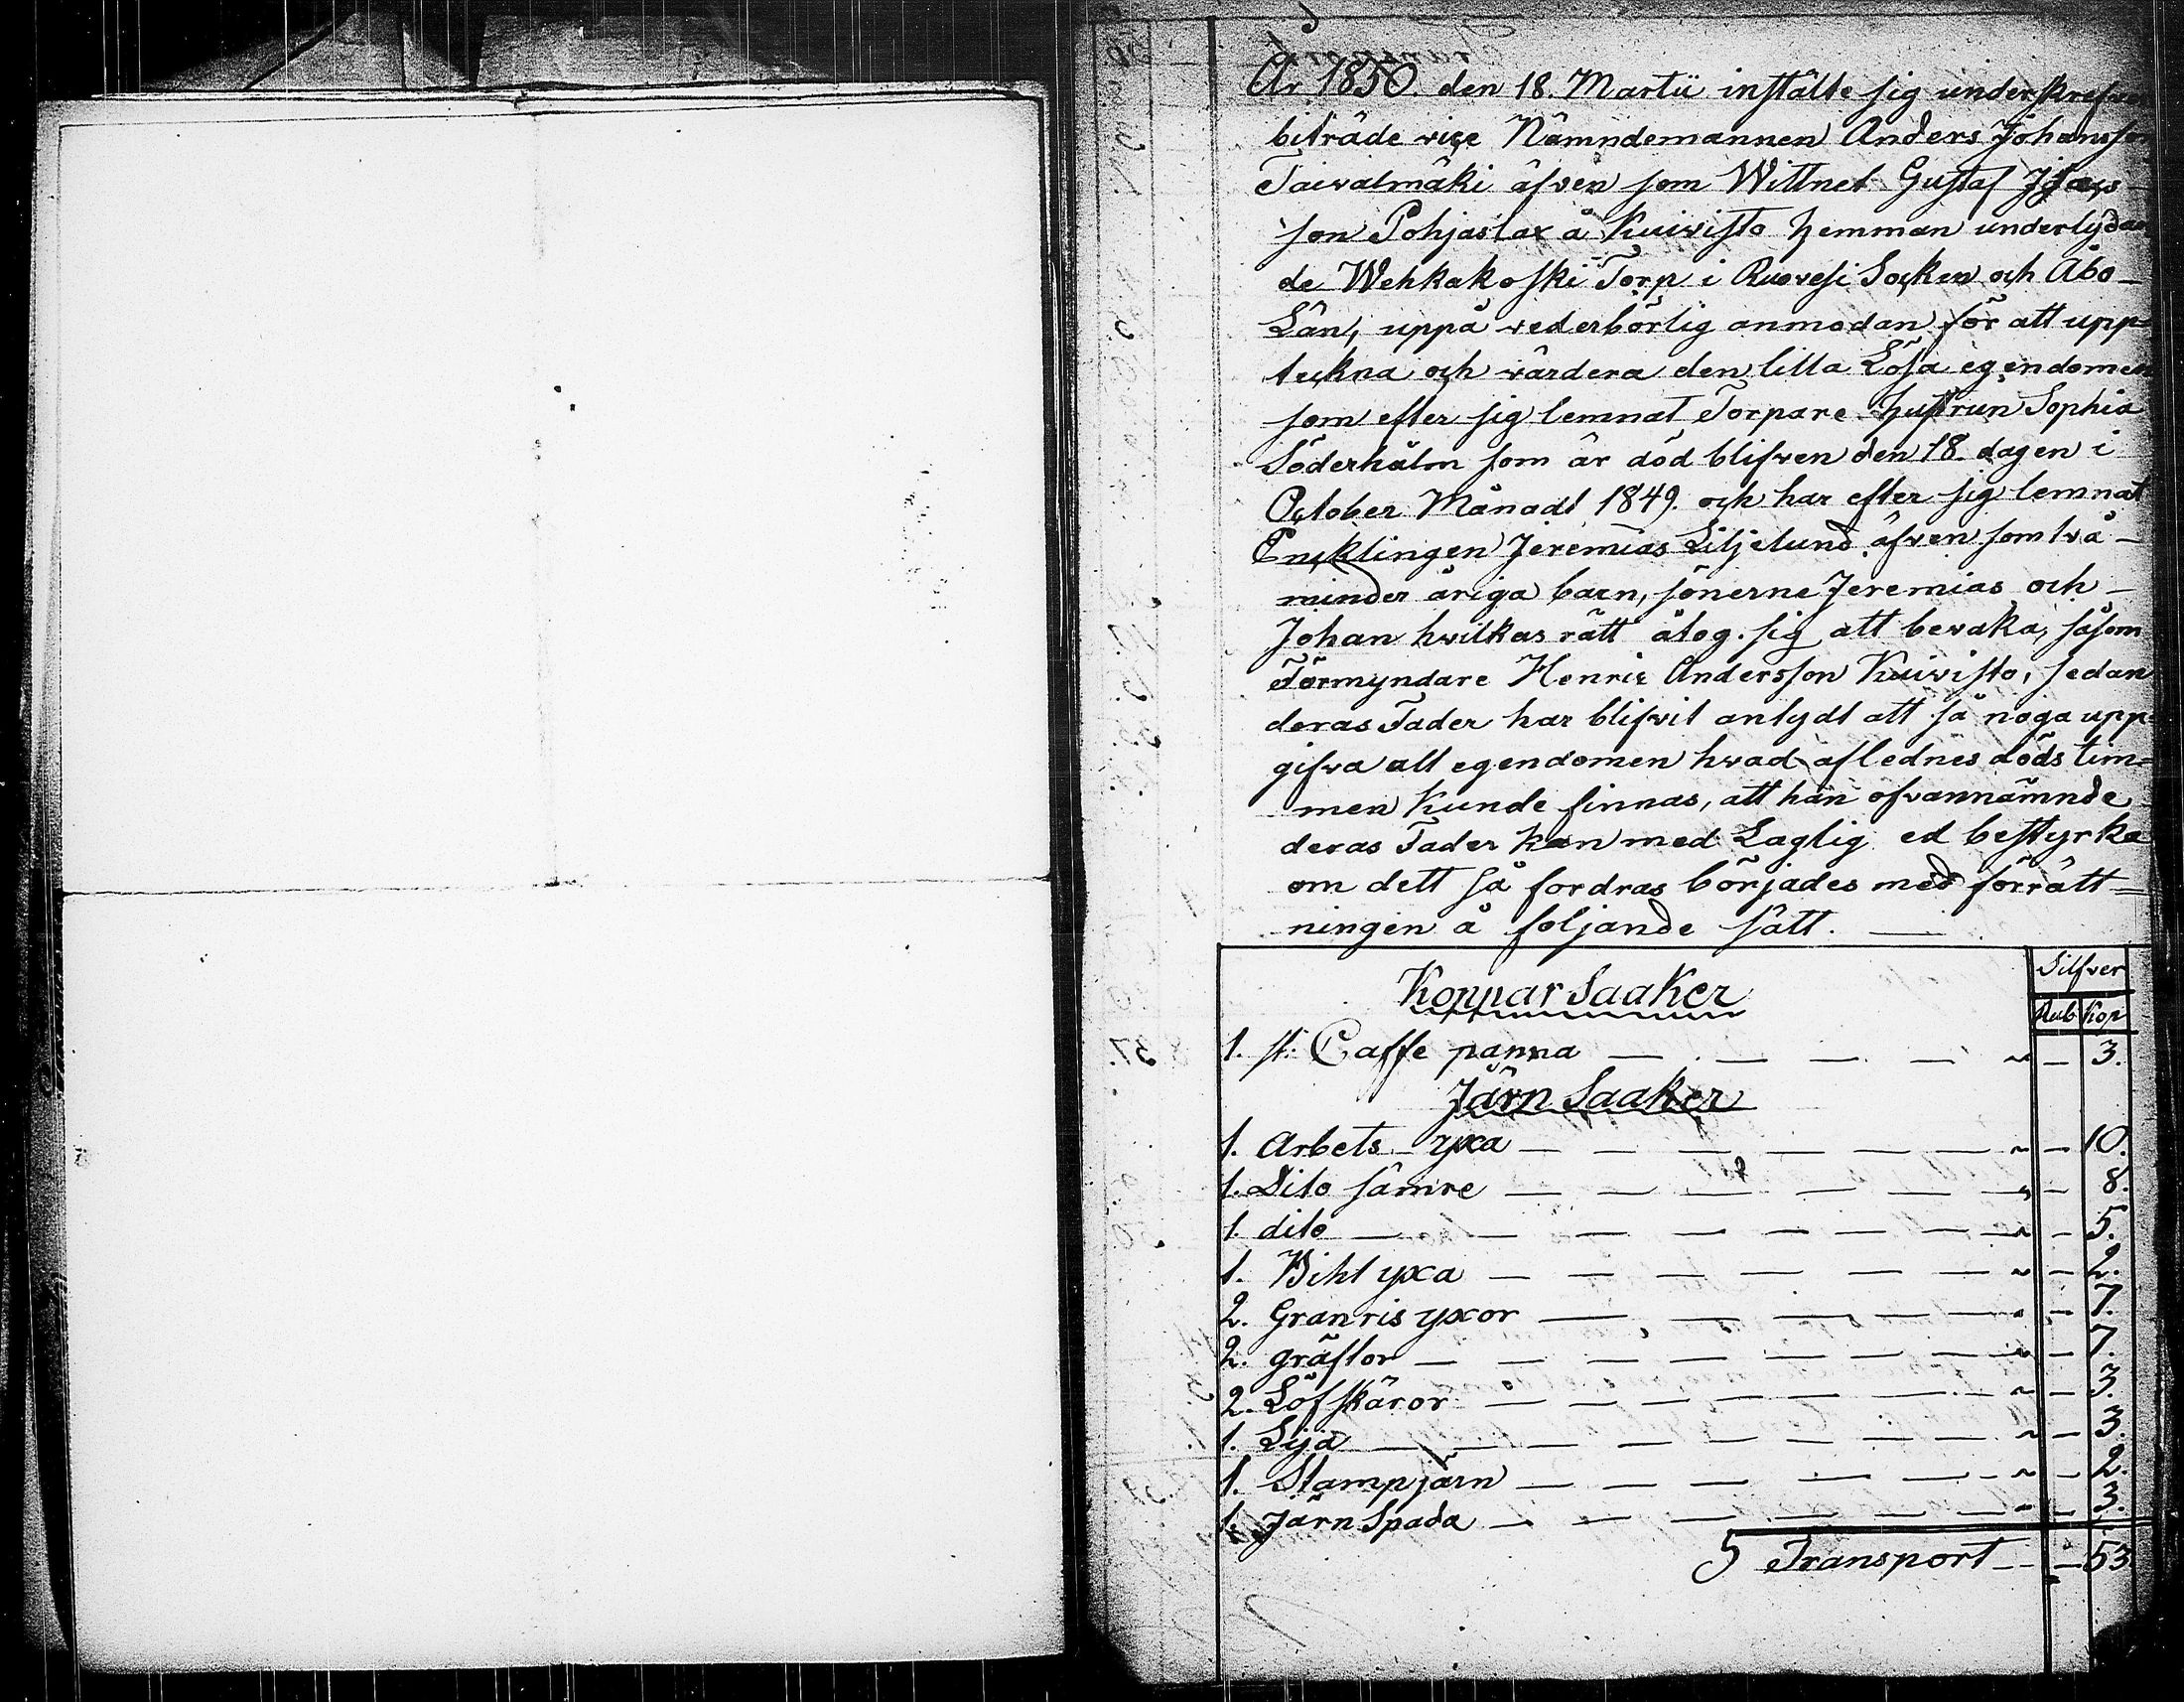 År 1850. den 18. Martii instälte sig underskrefven
biträde vice Nämndemannen Anders Johansson
Taivalmäki äfven som Wittnet Gustaf Isacs-
son Pohjaslax å Kuivisto hemman underlydan
de Wehkakoski Torp i Ruovesi Socken och Åbo-
Län, uppå vederbörlig anmodan för att upp-
teckna och värdera den lilla Lösa egendomen
som efter sig lemnat Torpare hustrun Sophia
Söderhålm som är död blifven den 18. dagen i
October Månadt 1849. och har efter sig lemnat
Encklingen Jeremias Liljelund äfven som två-
minder åriga barn, sönerne Jeremias och-
Johan hvilkas rätt åtog sig att bevaka, såsom
Förmyndare Henric Andersson Kuivisto, sedan
deras Fader har blifvit antydt att så noga upp-
gifva all egendomen hvad aflednes döds tim=
men kunde finnas, att han ofvannämnde
deras Fader kan med Laglig ed bestyrka
om dett så fordras börjades med förrätt=
ningen å foljande sätt.
Silfver
Koppar Saaker
Rub Kop
1. st. Caffe panna — 3.
Järn Saaker
1. Arbets yxa — 10.
1. Dito sämre — 8.
1. dito — 5.
1. Bihl yxa — 2.
2. Granris yxor — 7.
2. gräftor — 7.
2. Löfskäror — 3.
1. Lija — 3.
1. Stampjärn — 2.
1. Järn Spada — 3.
5 Transport — 53.